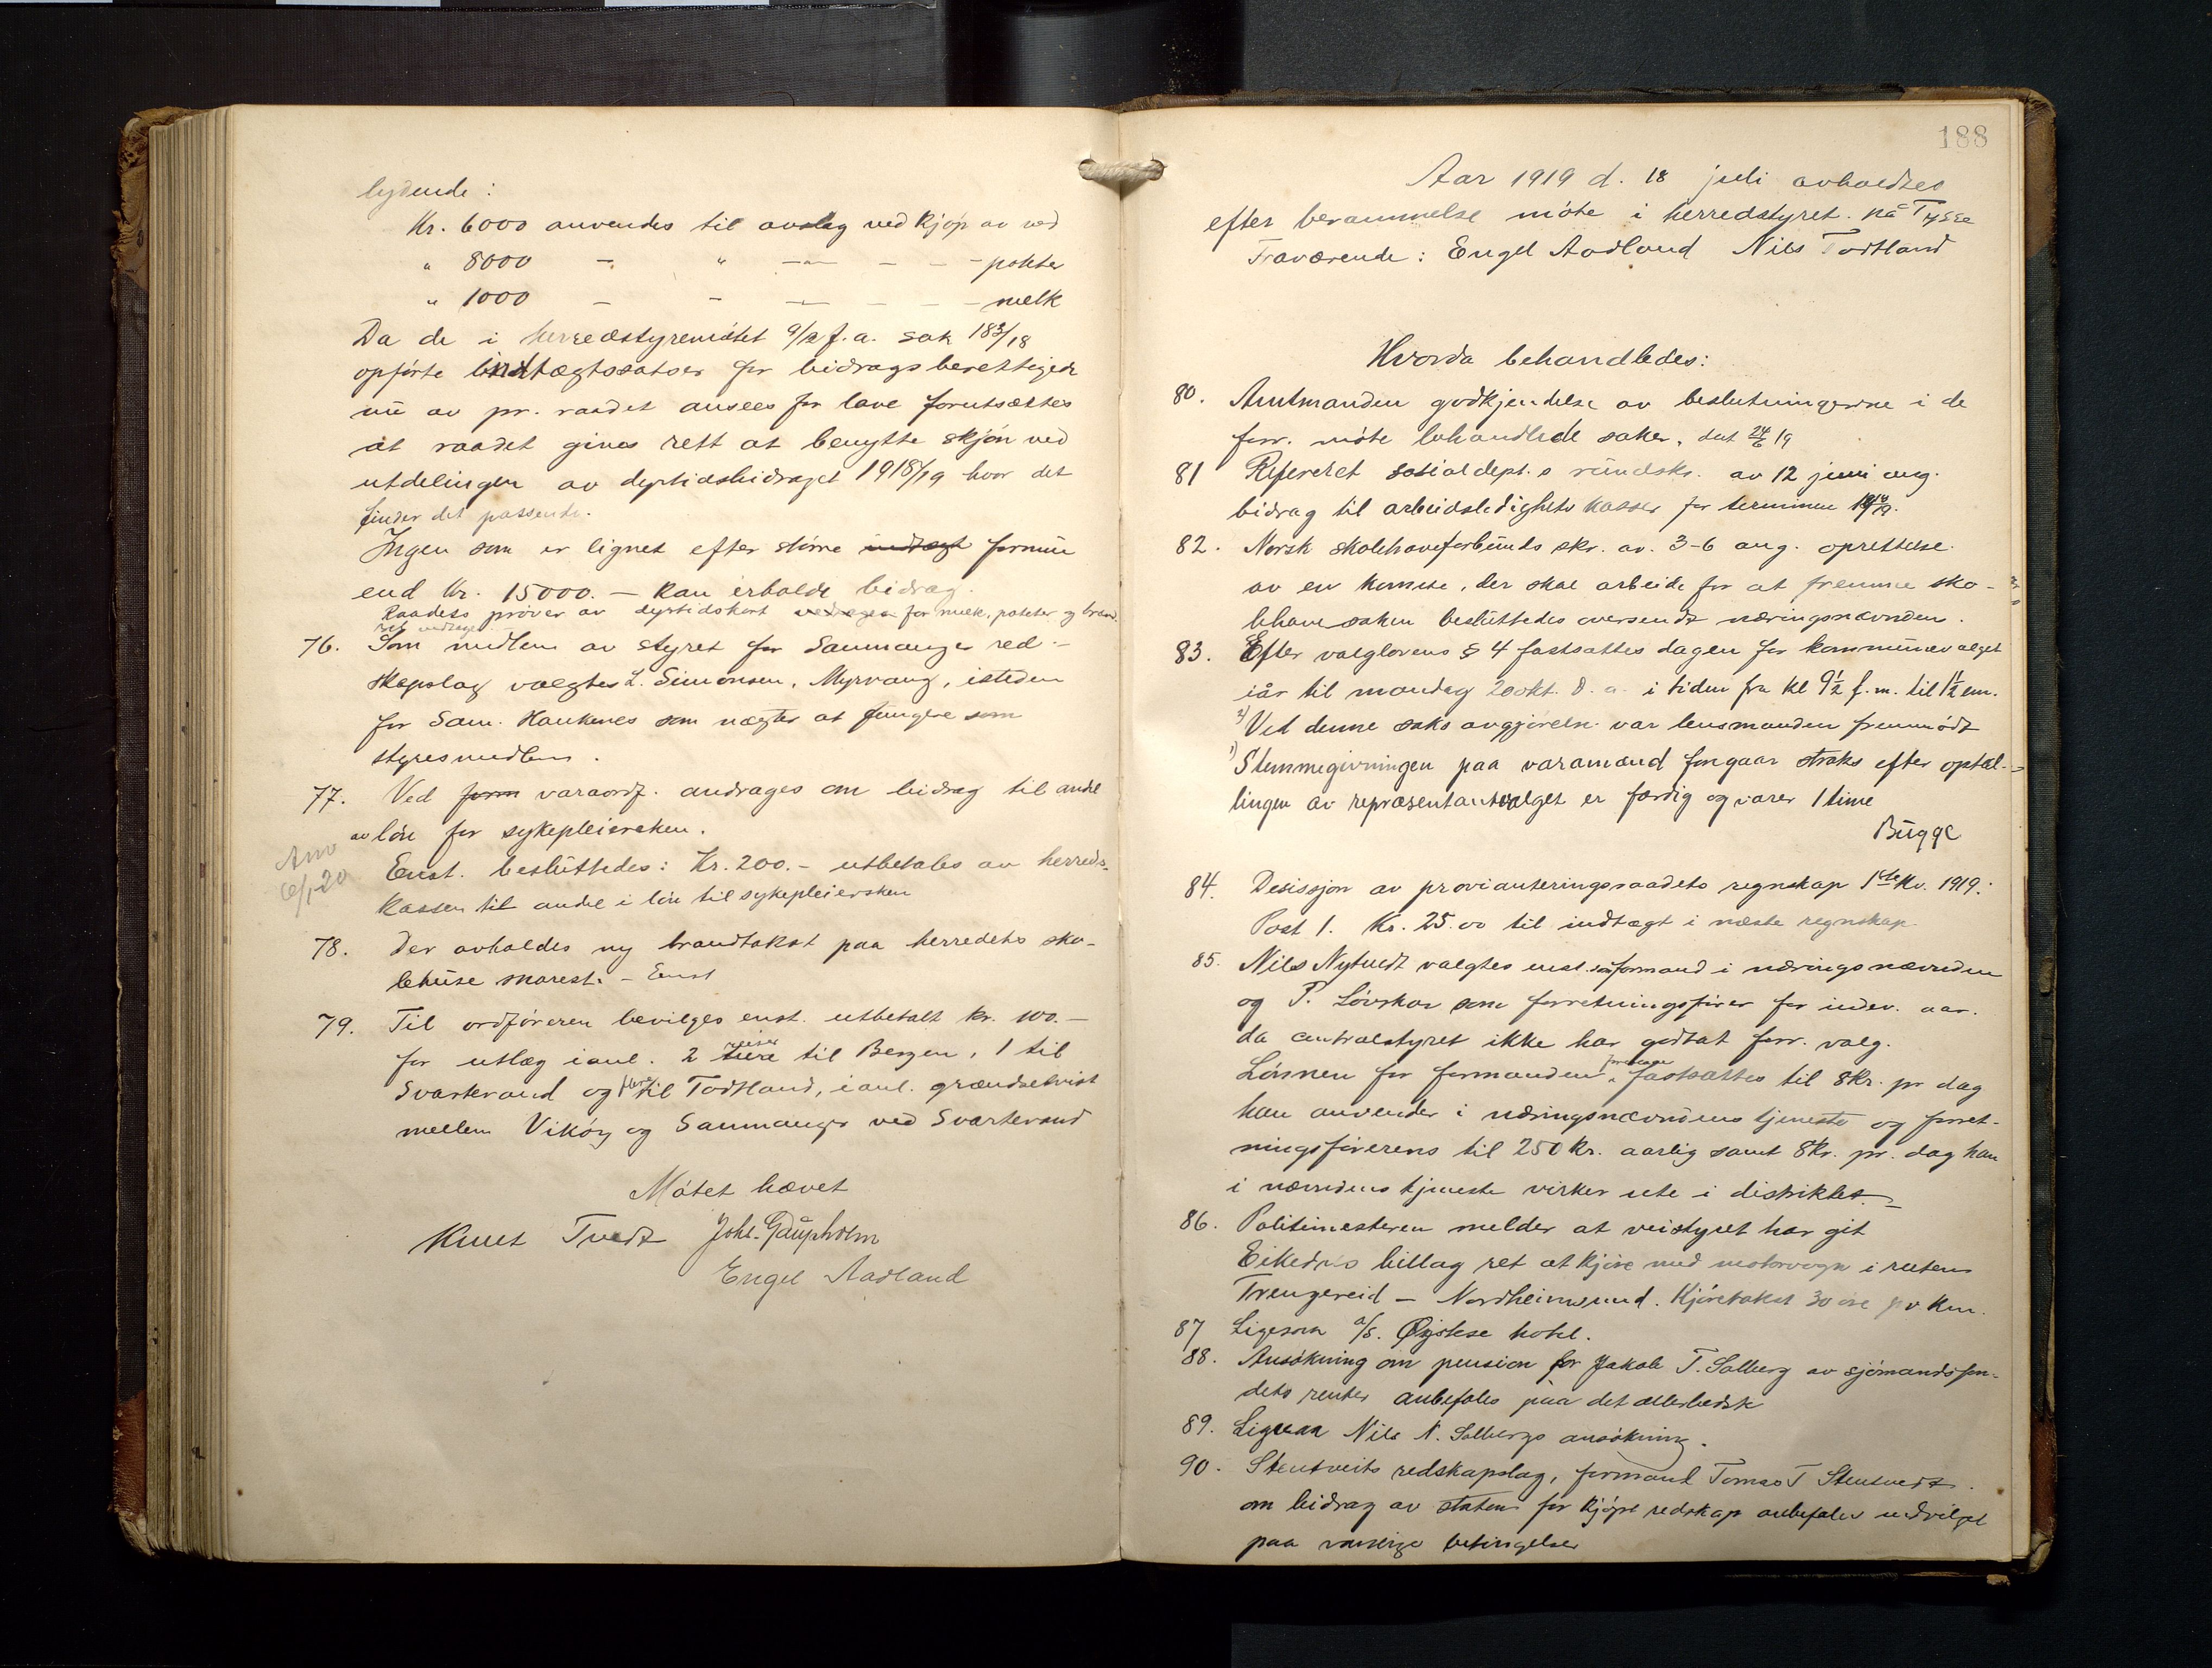 lydende:
Kr. 6000 anvendes til avslag ved kjøp av ved
" 8000 - " -"- - - - poteter
" 1000 - - -"- - - - melk
Da de i herredstyremøtet 9/12 f.a. sak 183/18
opførte indtægtssatser for bidragsberettigede
nu av pr. raadet ansees for lave forutsættes
at raadet gives rett at benytte skjøn ved
utdelingen av dyrtidsbidraget 1918/19 hvor det
finder det passende.
Ingen som er lignet efter større indtægt formue
end Kr. 15000.- kan erholde bidrag.
Raadets prøver av dyrtidskort for melk, poteter og brænd.
blev vedtaget
76. Som medlem av styret for Samnanger red-
skapslag valgtes L. Simonsen, Myrvang, isteden
for Sam. Haukenes som nægter at fungere som
styresmedlem.
77. Ved form varaordf. andrages om bidrag til andel
av løn for sykepleiersken.
Anv
6/1-20
Enst. besluttedes: Kr. 200.- utbetales av herreds-
kassen til andel i løn til sykepleiersken
78. Der avholdes ny brandtakst paa herredets sko-
lehuse snarest. - Enst
79. Til ordføreren bevilges enst. utbetalt kr. 100.-
for utlæg i anl. 2 turer reiser til Bergen, 1 til
Svartevand og flere til Todtland, i anl. grændsetvist
mellem Vikør og Samnanger ved Svartevand
Møtet hævet
Knut Tvedt Johs. Gaupholm
Engel Aadland
188
Aar 1919 d. 18 juli avholdtes
efter berammelse møte i herredstyret på Tysse
Fraværende: Engel Aadland Nils Todtland
Hvorda behandledes:
80. Amtmanden godkjendelse av beslutningerne i de
forr. møte behandlede saker, dat 24/6 19
81 Referert sosialdept.s rundskr. av 12 juni ang.
bidrag til arbeidsledighets kasser for terminen 18/19.
82. Norsk skolehaveforbunds skr. av. 3-6 ang. oprettelse
av en komite, der skal arbeide for at fremme sko-
lehavesaken besluttedes oversendt næringsnævnden.
83. Efter valglovens § 4 fastsattes dagen for kommunevalget
iår til mandag 20 okt. d.a. i tiden fra kl 9½ f.m. til 1½ em.
2) Ved denne saks avgjørelse var lensmanden fremmødt
1) Stemmegivningen paa varamænd foregaar straks efter optæl-
lingen av repræsentantvalget er færdig og varer 1 time
Bugge
84. Desissjon av provianteringsraadets regnskap 1ste Kv. 1919:
Post 1. Kr. 25.00 til indtægt i næste regnskap
85. Nils Nytvedt valgtes enst. som formand i næringsnævnden
og P. Løvskar som forretningsfører for indev. aar.
da centralstyret ikke har godtat forr. valg.
Lønnen for formanden fastsattes til 8 Kr. pr dag
han anvender i næringsnævndens tjeneste og forret-
ningsførerens til 250 Kr. aarlig samt 8 Kr. pr. dag han
i nævndens tjeneste virker ute i distriktet.
86. Politimesteren melder at veistyret har git
Eikedals billag ret at kjøre med motorvogn i ruten
Trengereid - Nordheimsund. Kjøretakst 30 øre pr km.
87 Ligesom a/s. Øystese hotel.
88. Ansøkning om pension for Jakob T. Solberg av sjømandsfon-
dets renter anbefales paa det allerbedste
89. Ligesaa Nils N. Solbergs ansøkning.
90. Stentveits redskapslag, formand Tomas T Stentvedt
om bidrag av staten for kjøpt redskap anbefales indvilget
paa vanlige betingelser